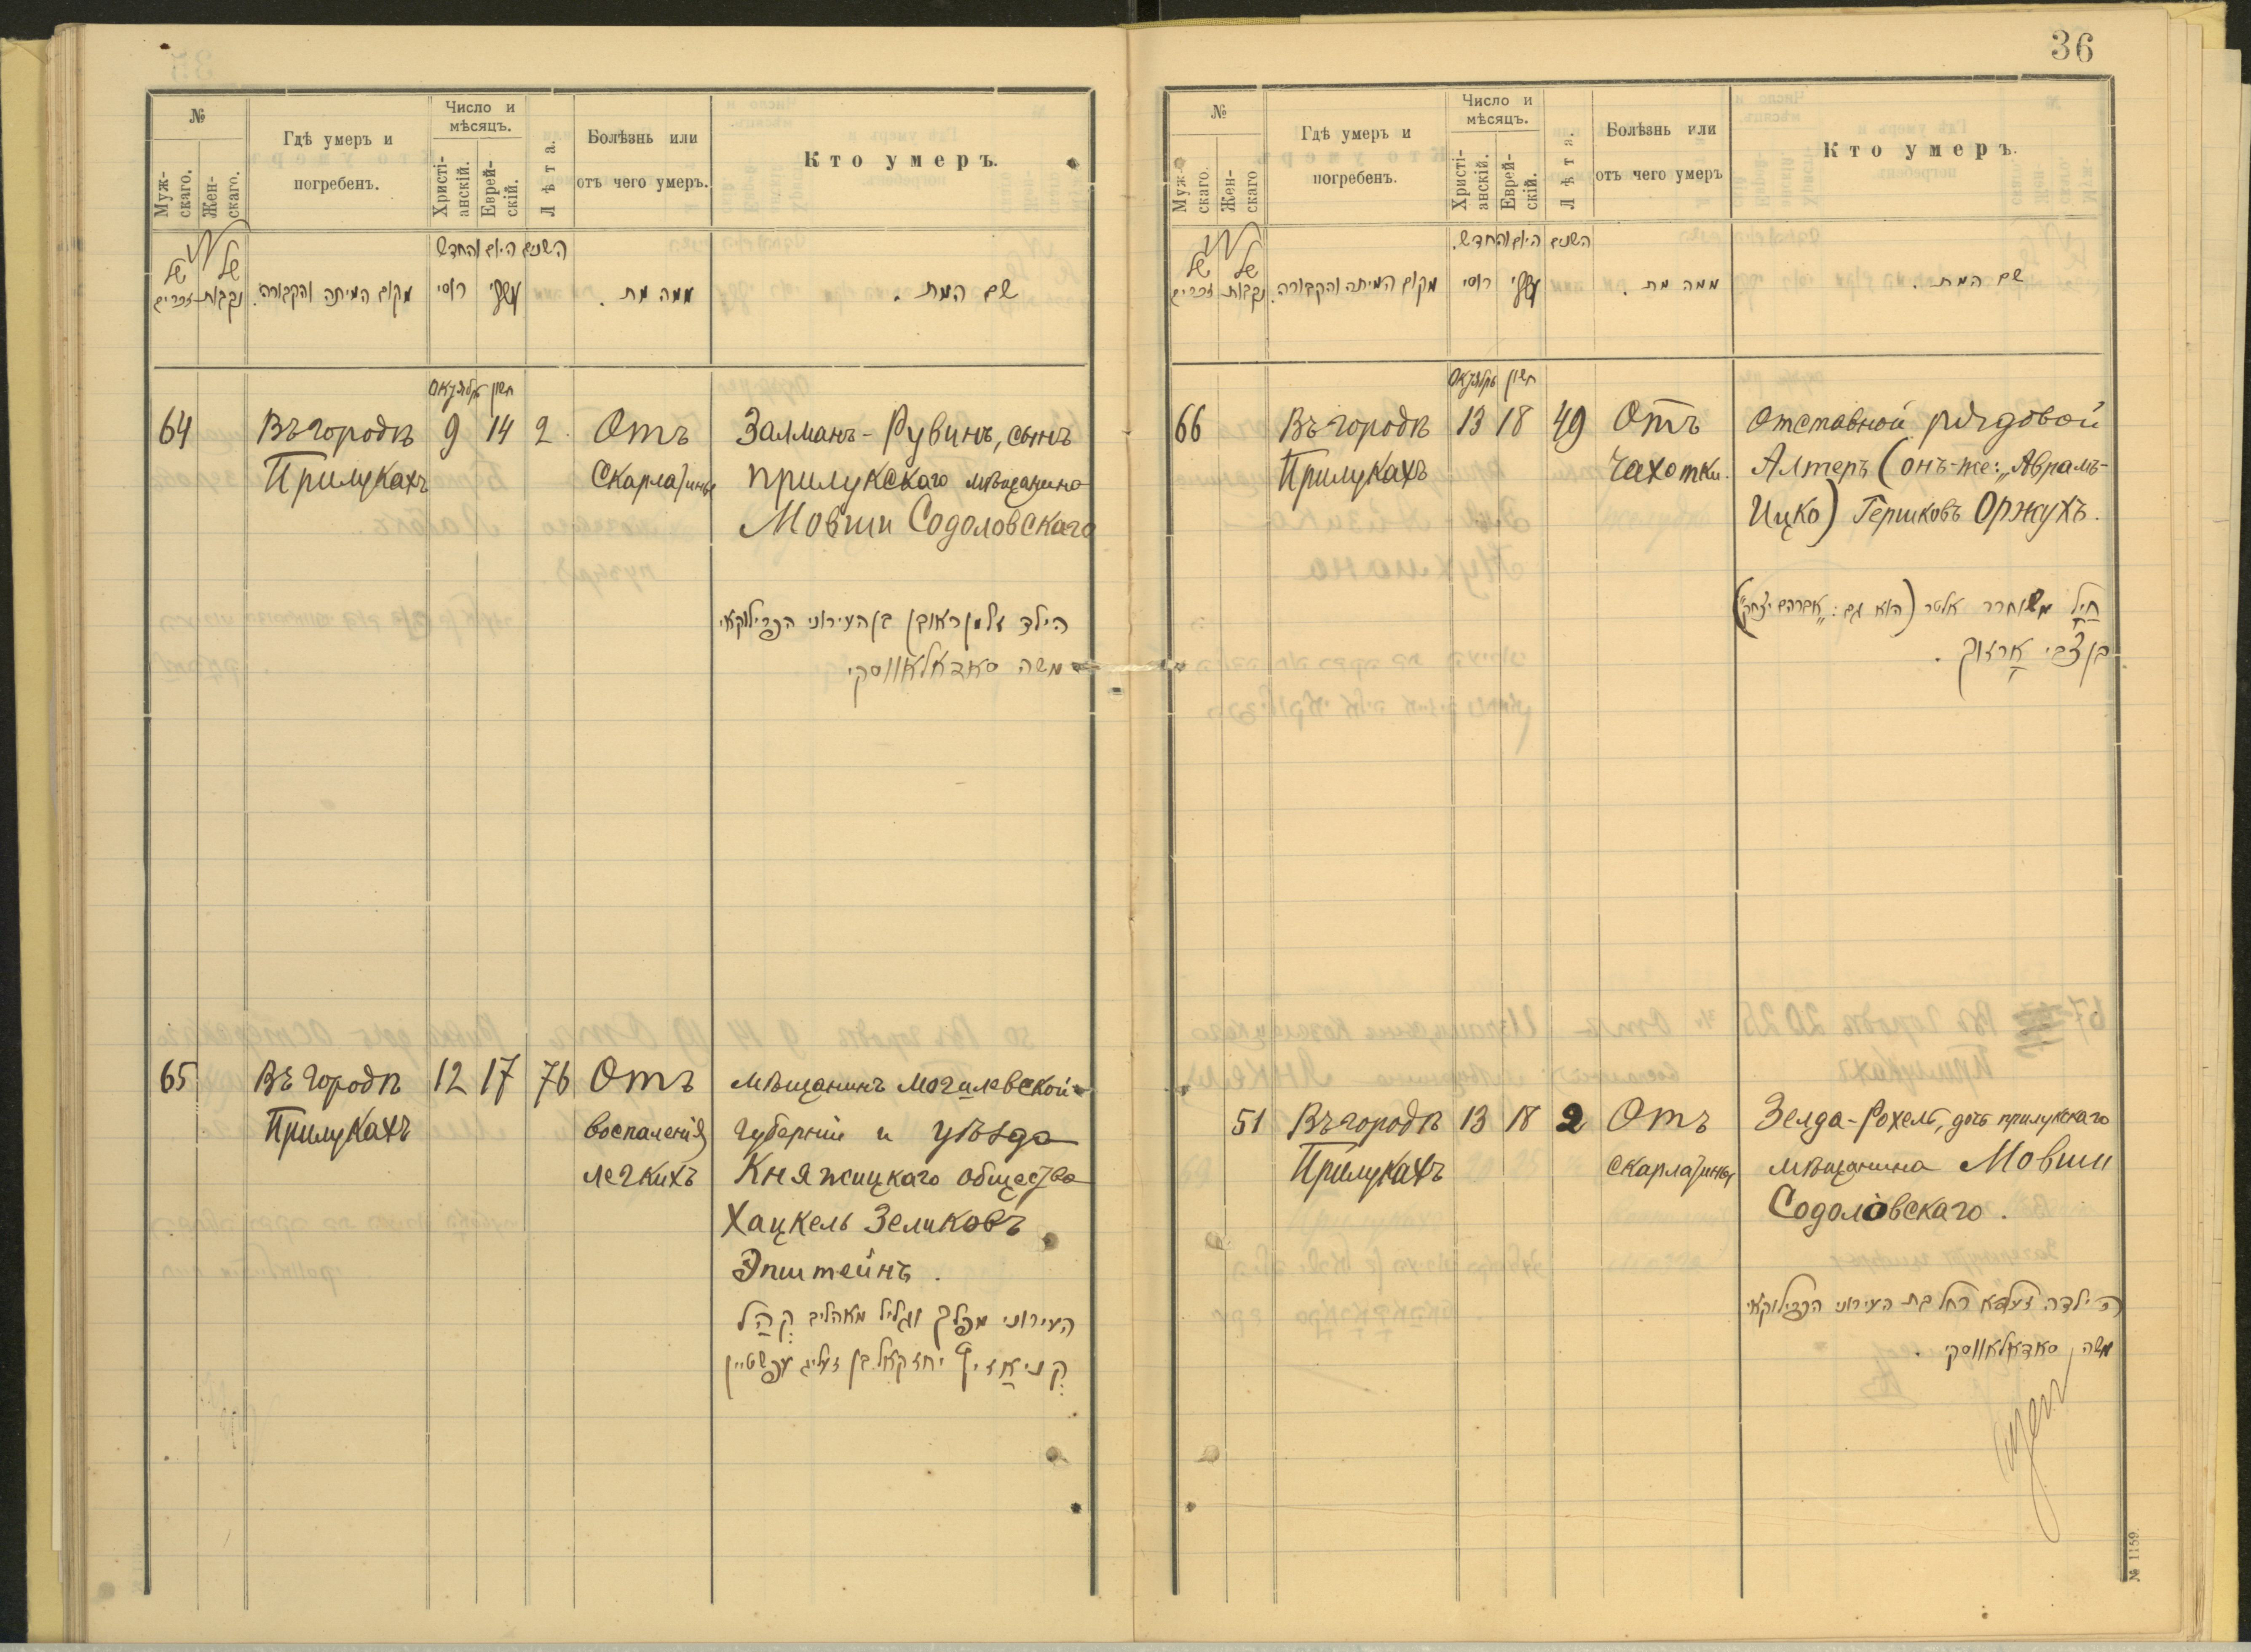 36
№
Муж-
скаго.
Жен-
скаго.
Гдѣ умеръ и
погребенъ.
Число и
мѣсяцъ.
Христі-
анскій.
Еврей-
скій.
Лѣта.
Болѣзнь или
отъ чего умеръ.
Кто умеръ.
של זכרים
של נקבות
מקום המיתה והקבורה.
השנים היום והחדש
רוסי
ממה מת.
שם המת.
Октябрь חשון
64 Въ городѣ 9 14 2 Отъ Залманъ-Рувинъ, сынъ
Прилукахъ Скарлатины прилукскаго мѣщанина
Мовши Содоловскаго
הילד זלמן ראובן בן העירוני הפרילוקאי
משה סאדאלאווסקי
65 Въ городѣ 12 17 76 Отъ мѣщанинъ Могилевской
Прилукахъ воспаленія губерніи и уѣзда
легкихъ Княжицкаго общества
Хацкель Зеликовъ
Эпштейнъ.
העירוני מפלך וגליל מאהליב קהל
קניאזיץ יחזקאל בן זעליג עפשטיין
№
Муж-
скаго.
Жен-
скаго
Гдѣ умеръ и
погребенъ.
Число и
мѣсяцъ.
Христі-
анскій.
Еврей-
скій.
Лѣта.
Болѣзнь или
отъ чего умеръ
Кто умеръ.
של זכרים
של נקבות
מקום המיתה והקבורה.
השנים היום והחדש.
רוסי
ממה מת.
שם המת.
Октябрь חשון
66 Въ городѣ 13 18 49 Отъ Отставной рядовой
Прилукахъ Чахотки. Алтеръ (онъ-же: „Аврамъ-
Ицко) Гершковъ Оржухъ.
חיל משוחרר אלטר (הוא גם: „אברהם יצחק")
בן צבי ארזוך.
51 Въ городѣ 13 18 2 Отъ Зелда-Рохель, дочь прилукскаго
Прилукахъ Скарлатины мѣщанина Мовши
Содоловскаго.
הילדה זעלדא רחל בת העירוני הפרילוקאי
משה סאדאלאווסקי.
№ 1159.